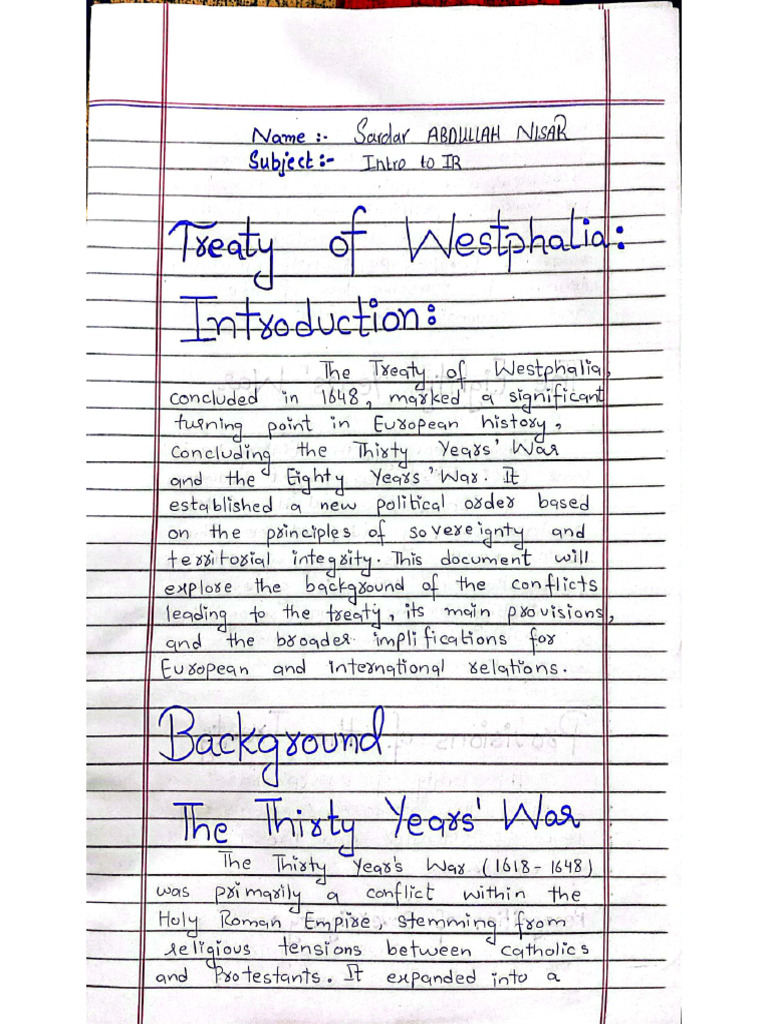 Name :- Sardar ABDULLAH NISAR
Subject :- Intro to IR
Treaty of Westphalia:
Introduction:
The Treaty of Westphalia,
concluded in 1648, marked a significant
turning point in European history,
concluding the Thirty Years' War
and the Eighty Years' War. It
established a new political order based
on the principles of sovereignty and
territorial integrity. This document will
explore the background of the conflicts
leading to the treaty, its main provisions,
and the broader implifications for
European and international relations.
Background
The Thirty Years' War
The Thirty Year's War (1618-1648)
was primarily a conflict within the
Holy Roman Empire, stemming from
religious tensions between catholics
and Protestants. It expanded into a